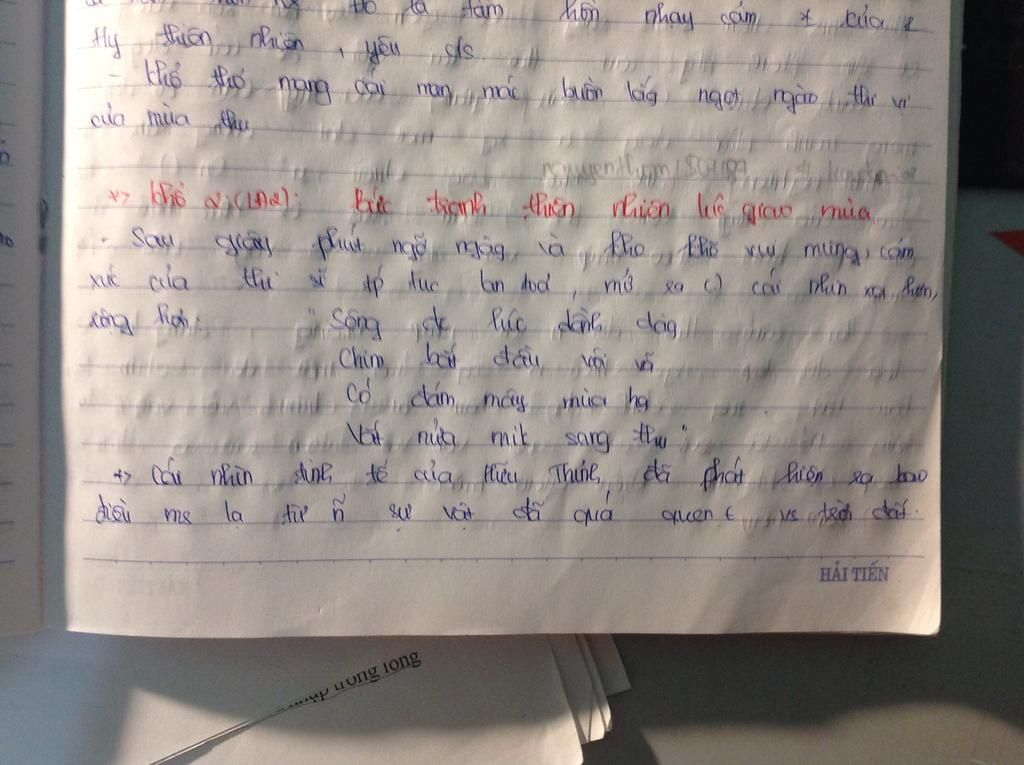 Đó là tâm hồn nhạy cảm, t. của
ty thiên nhiên, yêu c/s
- Khổ thơ mang cái man mác buồn lág ngọt ngào thi vị
của mùa thu
+> Khổ 2 (LĐ2): Bức tranh thiên nhiên lúc giao mùa
- Sau giây phút ngỡ ngàg và khe khẽ vui mừng, cảm
xúc của thi sĩ tip tục lan toả, mở ra cái nhìn xa hơn,
rộng hơn: "Sông dc lúc dềnh dàg
Chim bắt đầu vội vã
Có đám mây mùa hạ
Vắt nửa mìh sang thu"
+> Cái nhìn tinh tế của Hữu Thỉnh đã phát hiện ra bao
điều ms lạ từ ~n sự vật đã quá quen t vs trời đất.
HẢI TIẾN
trong lòng